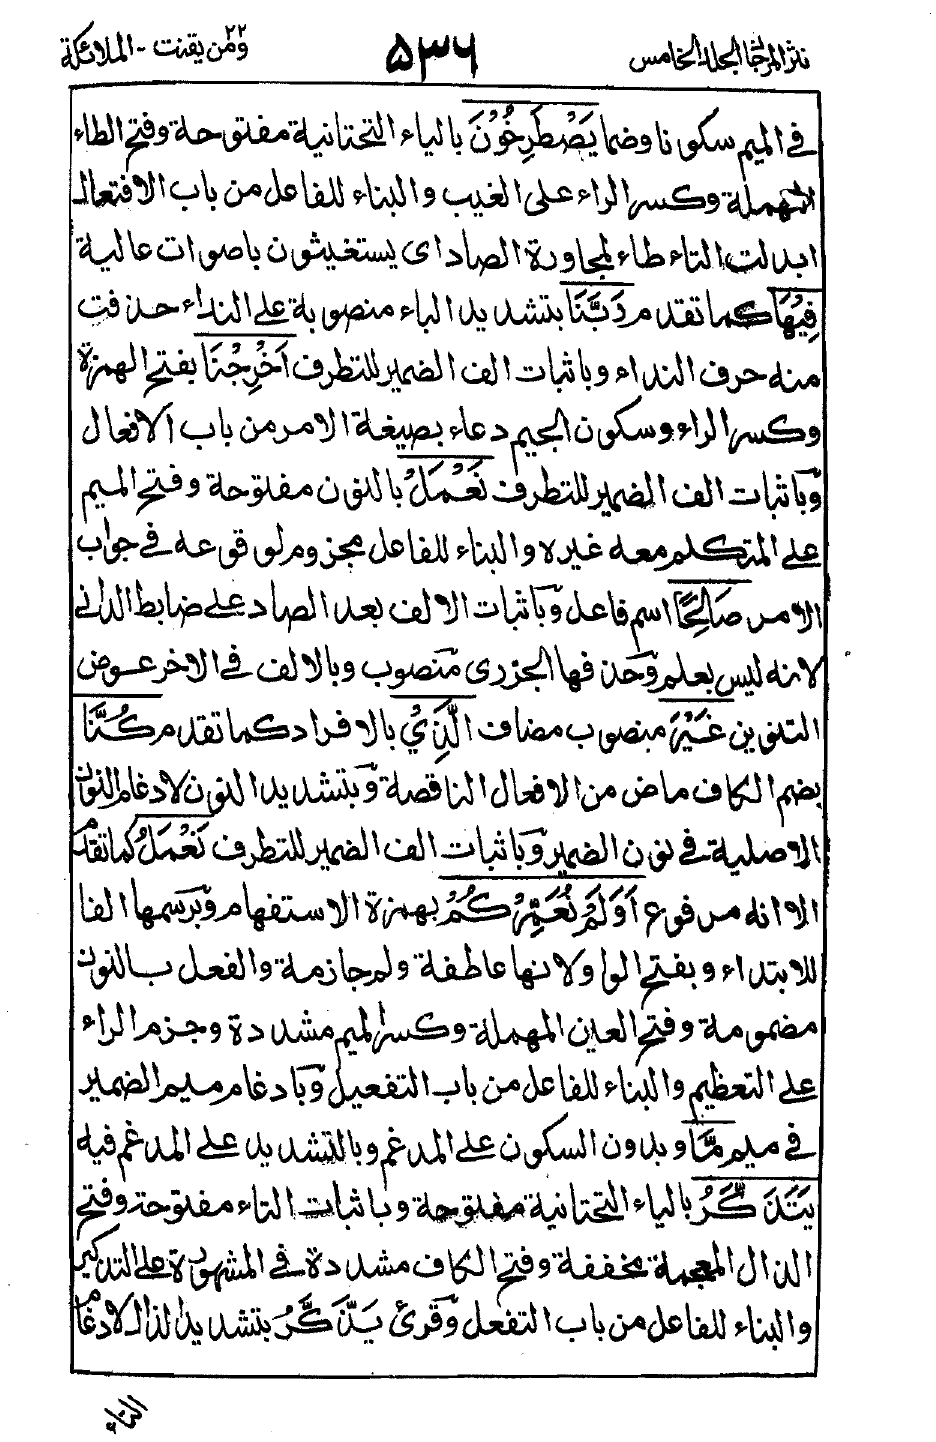 نثر المرجان المجلد الخامس
٥٣٦
٢٢
ومن يقنت - الملائكة
في الميم سكونا وضما يَصْطَرِخُوْنَ بالياء التحتانية مفتوحة وفتح الطاء
المهملة وكسر الراء على الغيب والبناء للفاعل من باب الافتعال
ابدلت التاء طاء لمجاورة الصاد اى يستغيثون باصوات عالية
فِيْهَا كما تقدم رَبَّنَا بتشديد الباء منصوبة على النداء حذفت
منه حرف النداء وباثبات الف الضمير للتطرف اَخْرِجْنَا بفتح الهمزة
وكسر الراء وسكون الجيم دعاء بصيغة الامر من باب الافعال
وباثبات الف الضمير للتطرف نَعْمَلْ بالنون مفتوحة وفتح الميم
على المتكلم معه غيره والبناء للفاعل مجزوم لوقوعه في جواب
الامر صَالِحًا اسم فاعل وباثبات الالف بعد الصاد على ضابط الداني
لانه ليس بعلم وحذفها الجزرى منصوب وبالالف في الاخر عوض
التنوين غَيْرَ منصوب مضاف الَّذِيْ بالافراد كما تقدم كُنَّا
بضم الكاف ماض من الافعال الناقصة وبتشديد النون لادغام النون
الاصلية في نون الضمير وباثبات الف الضمير للتطرف نَعْمَلُ كما تقدم
الا انه مرفوع اَوَلَمْ نُعَمِّرْكُمْ بهمزة الاستفهام وبرسمها الفا
للابتداء وبفتح الواو لانها عاطفة ولم جازمة والفعل بالنون
مضمومة وفتح العين المهملة وكسر الميم مشددة وجزم الراء
على التعظيم والبناء للفاعل من باب التفعيل وبادغام ميم الضمير
في ميم مَّا وبدون السكون على المدغم وبالتشديد على المدغم فيه
يَتَذَكَّرُ بالياء التحتانية مفتوحة وباثبات التاء مفتوحة وفتح
الذال المعجمة مخففة وفتح الكاف مشددة في المشهورة على التذكير
والبناء للفاعل من باب التفعل وقرئ يَذَّكَّرُ بتشديد الذال لادغام
التاء